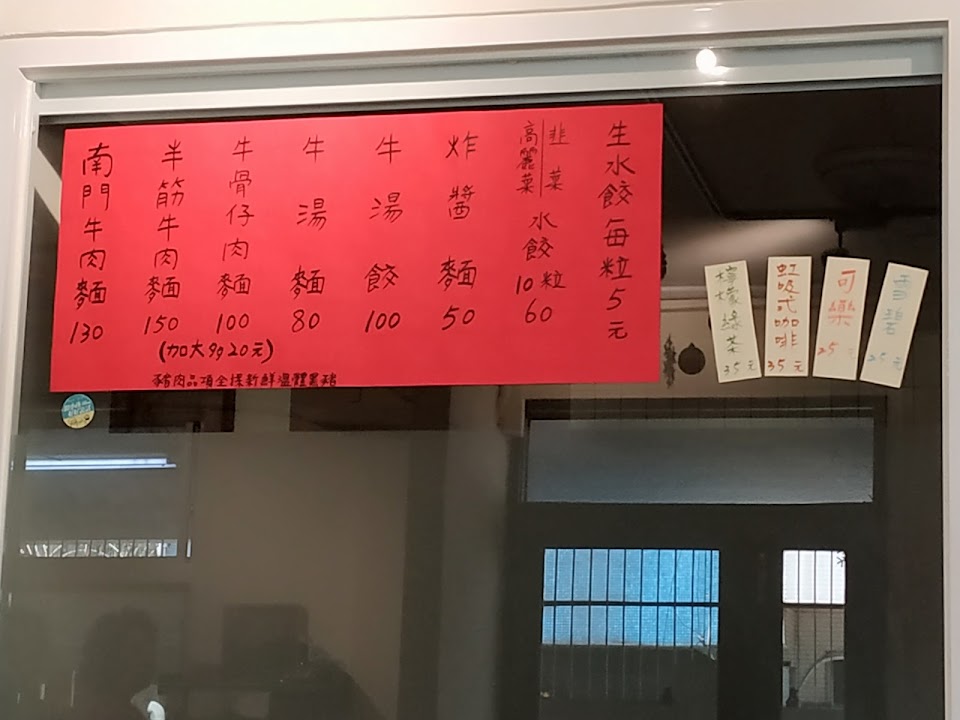 南門牛肉麵 130
半筋牛肉麵 150
牛骨仔肉麵 100
牛湯麵 80
牛湯餃 100
炸醬麵 50
高麗菜|韭菜 水餃10粒 60
生水餃每粒5元
(加大99 20元)
豬肉品項全採新鮮溫體黑豬
檸檬綠茶 35元
虹吸式咖啡 35元
可樂 25元
雪碧 25元